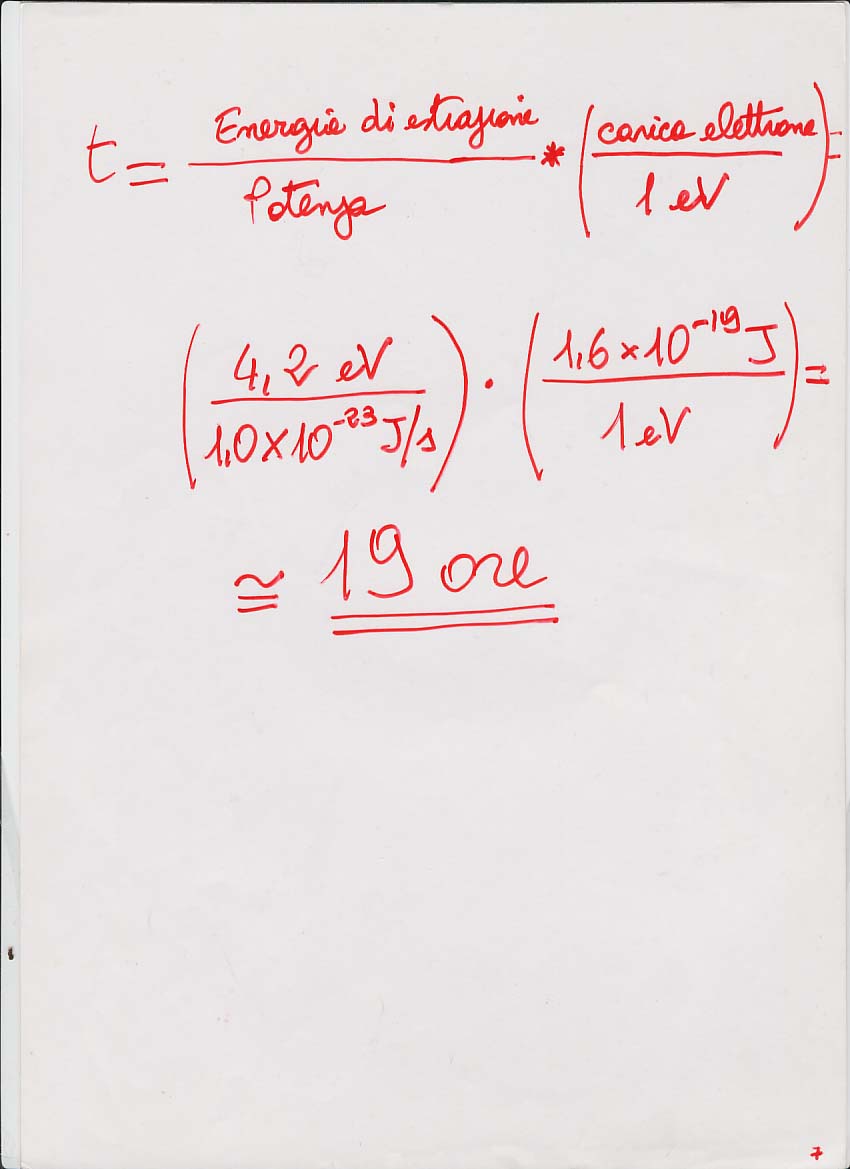 t = Energia di estrazione / Potenza * (carica elettrone / 1 eV) =
(4,2 eV / 1,0 × 10⁻²³ J/s) · (1,6 × 10⁻¹⁹ J / 1 eV) =
≅ 19 ore
7